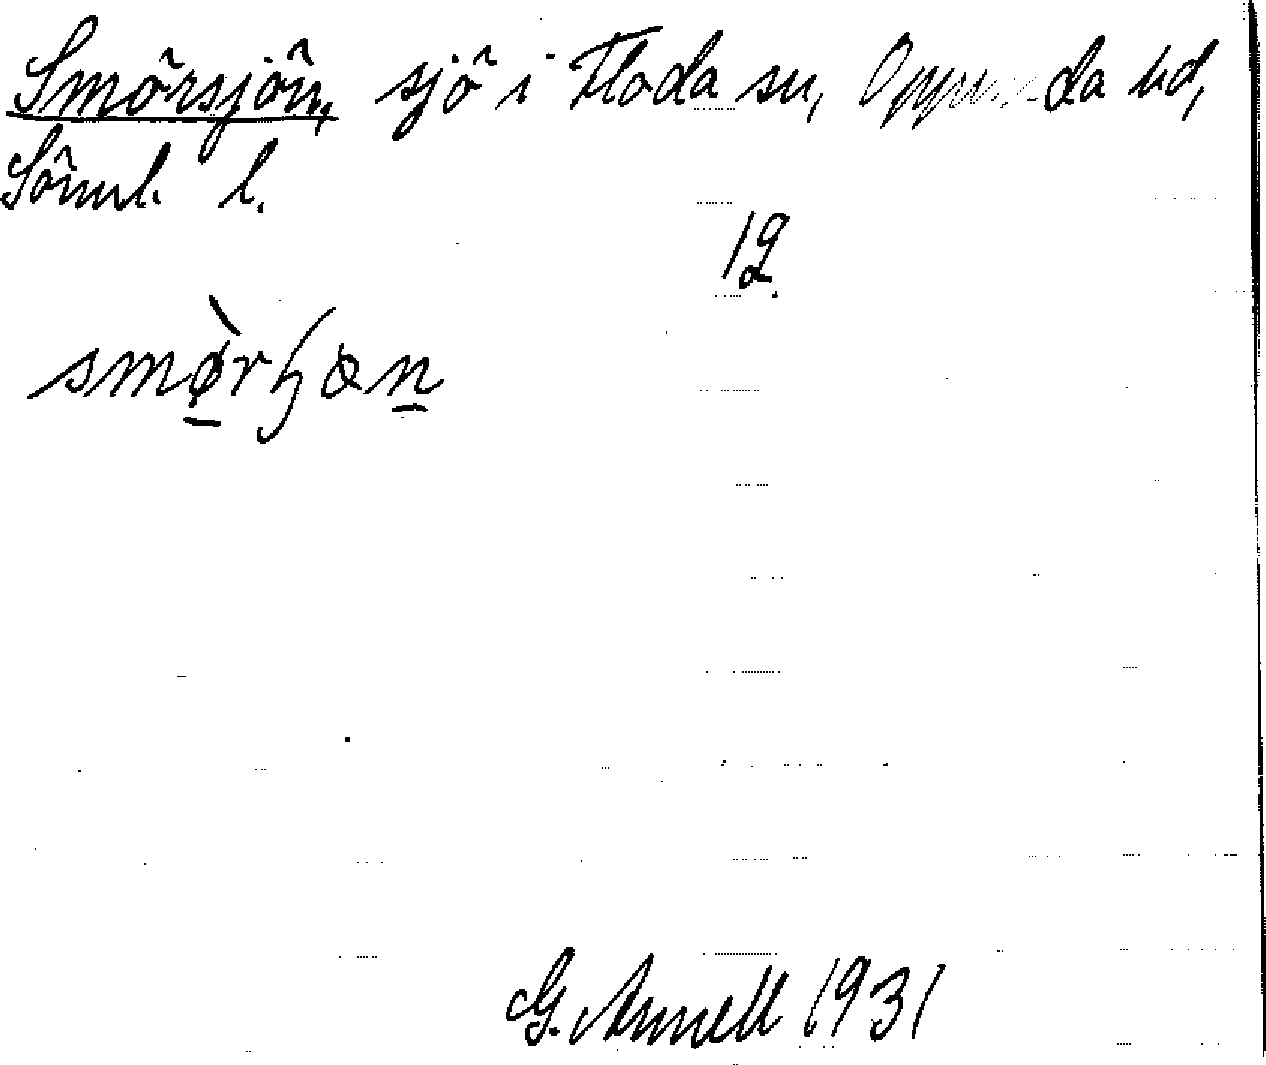 Smörsjön, sjö i Floda sn, Oppunda hd,
Söml. l.
12.
smø̱̀rɧøṉ
G. Arnell 1931